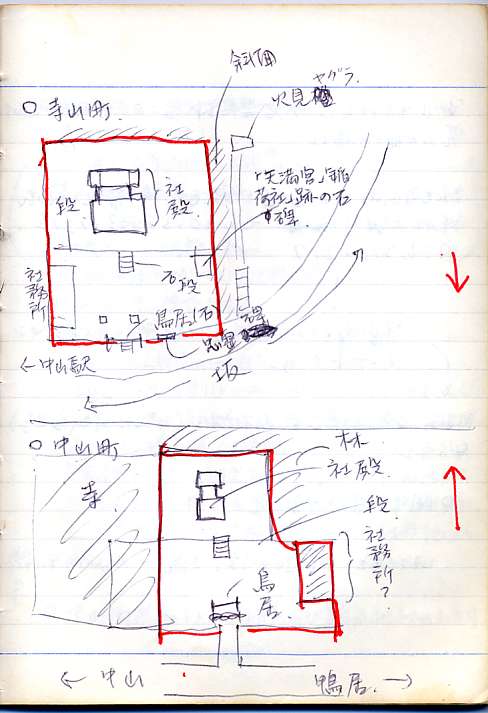 斜面
火見ヤグラ.
○ 寺山町.
「天満宮」「稲
荷社」跡の石
碑.
社殿.
段
石段
社務所
鳥居(石)
忠霊碑
← 中山駅
坂
○ 中山町
林
社殿
寺
段.
社務所?
鳥居.
← 中山
鴨居. →